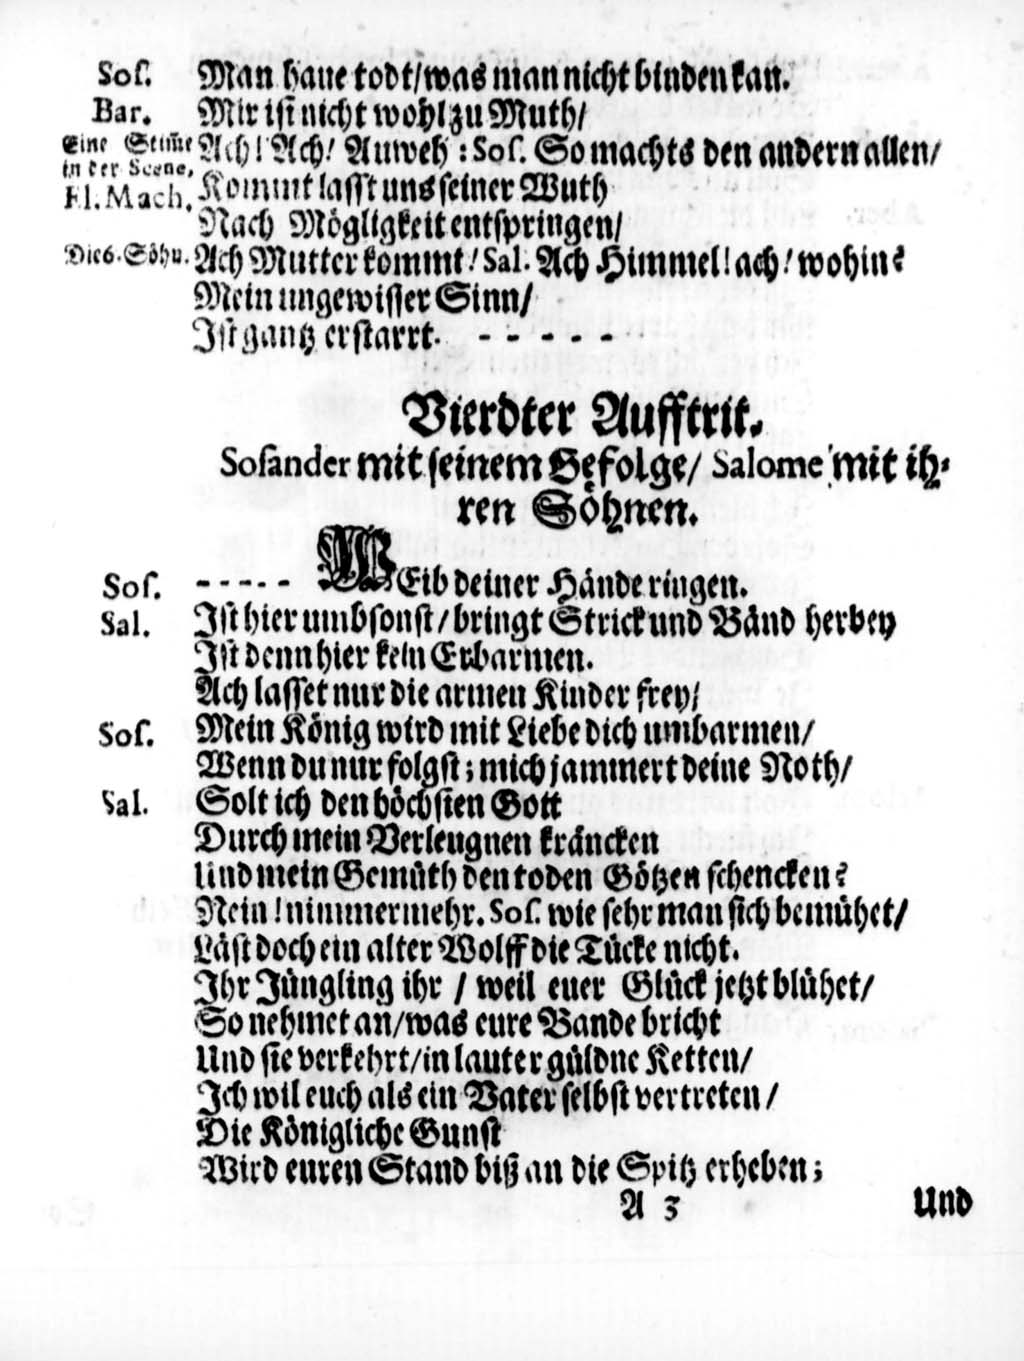 Soſ. Man haue todt/was man nicht binden kan.
Bar. Mir iſt nicht wohl zu Muth/
Eine Stim̃e in der Scene, Ach! Ach! Auweh: Soſ. So machts den andern allen/
Fl. Mach. Kommt laſſt uns ſeiner Wuth
Nach Mögligkeit entſpringen/
Die 6. Söhn. Ach Mutter kommt! Sal. Ach Himmel! ach! wohin?
Mein ungewiſſer Sinn/
Iſt gantz erſtarrt. - - - - -
Vierdter Aufftrit.
Soſander mit ſeinem Gefolge/ Salome mit ih-
ren Söhnen.
Soſ. - - - - - WEib deiner Hände ringen.
Sal. Iſt hier umbſonſt/bringt Strick und Bänd herbey
Iſt denn hier kein Erbarmen.
Ach laſſet nur die armen Kinder frey/
Soſ. Mein König wird mit Liebe dich umbarmen/
Wenn du nur folgſt; mich jammert deine Noth/
Sal. Solt ich den höchſten Gott
Durch mein Verleugnen kräncken
Und mein Gemüth den toden Götzen ſchencken?
Nein! nimmermehr. Soſ. wie ſehr man ſich bemühet/
Läſt doch ein alter Wolff die Tücke nicht.
Ihr Jüngling ihr / weil euer Glück jetzt blühet/
So nehmet an/was eure Bande bricht
Und ſie verkehrt/in lauter güldne Ketten/
Ich wil euch als ein Vater ſelbſt vertreten/
Die Königliche Gunſt
Wird euren Stand biß an die Spitz erheben;
A 3 Und